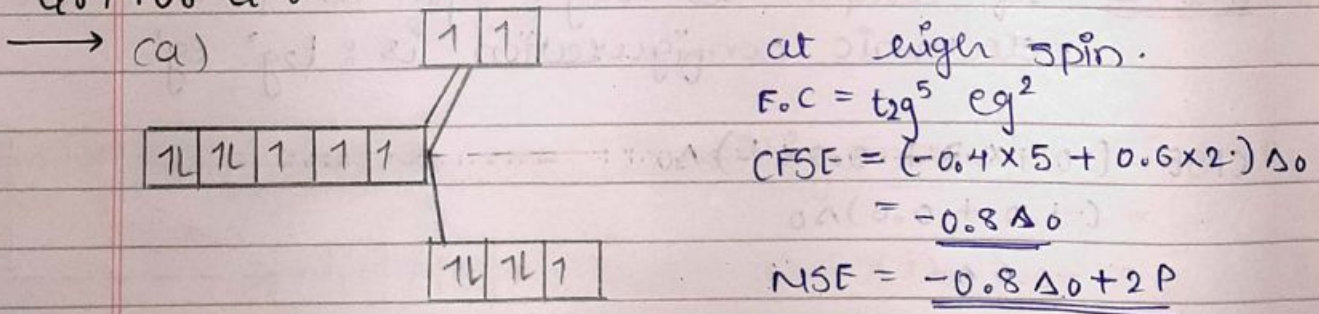 → (a) 1 1 at eigh spin.
E.C = t2g⁵ eg²
1L 1L 1 1 1 CFSE = (-0.4 × 5 + 0.6 × 2.) Δo
= -0.8 Δo
1L 1L 1 NSE = -0.8 Δo + 2P